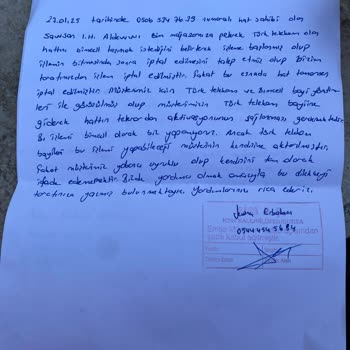 27.01.25 tarihinde, 0506 534 7639 numaralı hat sahibi olan
Sawsan I.H. Bizim mağazamıza gelerek Türk telekom olan
hattını Bimcell taşımak istediğini belirterek işleme başlamış olup
işlemin bitmesinden sonra iptal edilmesini talep etmiş olup Bizim
tarafımızdan işlem iptal edilmiştir. Fakat bu esnada hat tamamen
iptal edilmiştir. Müşterimiz için Türk telekom ve Bimcell bayi yönetim-
leri ile görüşülmüş olup müşterimizin Türk telekom bayiine
giderek hattın tekrardan aktivasyonunun sağlanması gerekmektedir.
Bu işlemi bimcell olarak biz yapamıyoruz. Ancak Türk telekom
bayileri bu işlemi yapabileceği müşterinin kendisine aktarılmıştır.
Fakat müşterimiz yabancı uyruklu olup kendisini tam olarak
ifade edememektedir. Bizde yardımcı olmak amacıyla bu dilekçeyi
tarafınıza yazmış bulunmaktayız. Yardımlarınızı rica ederiz.
0544 454 5684